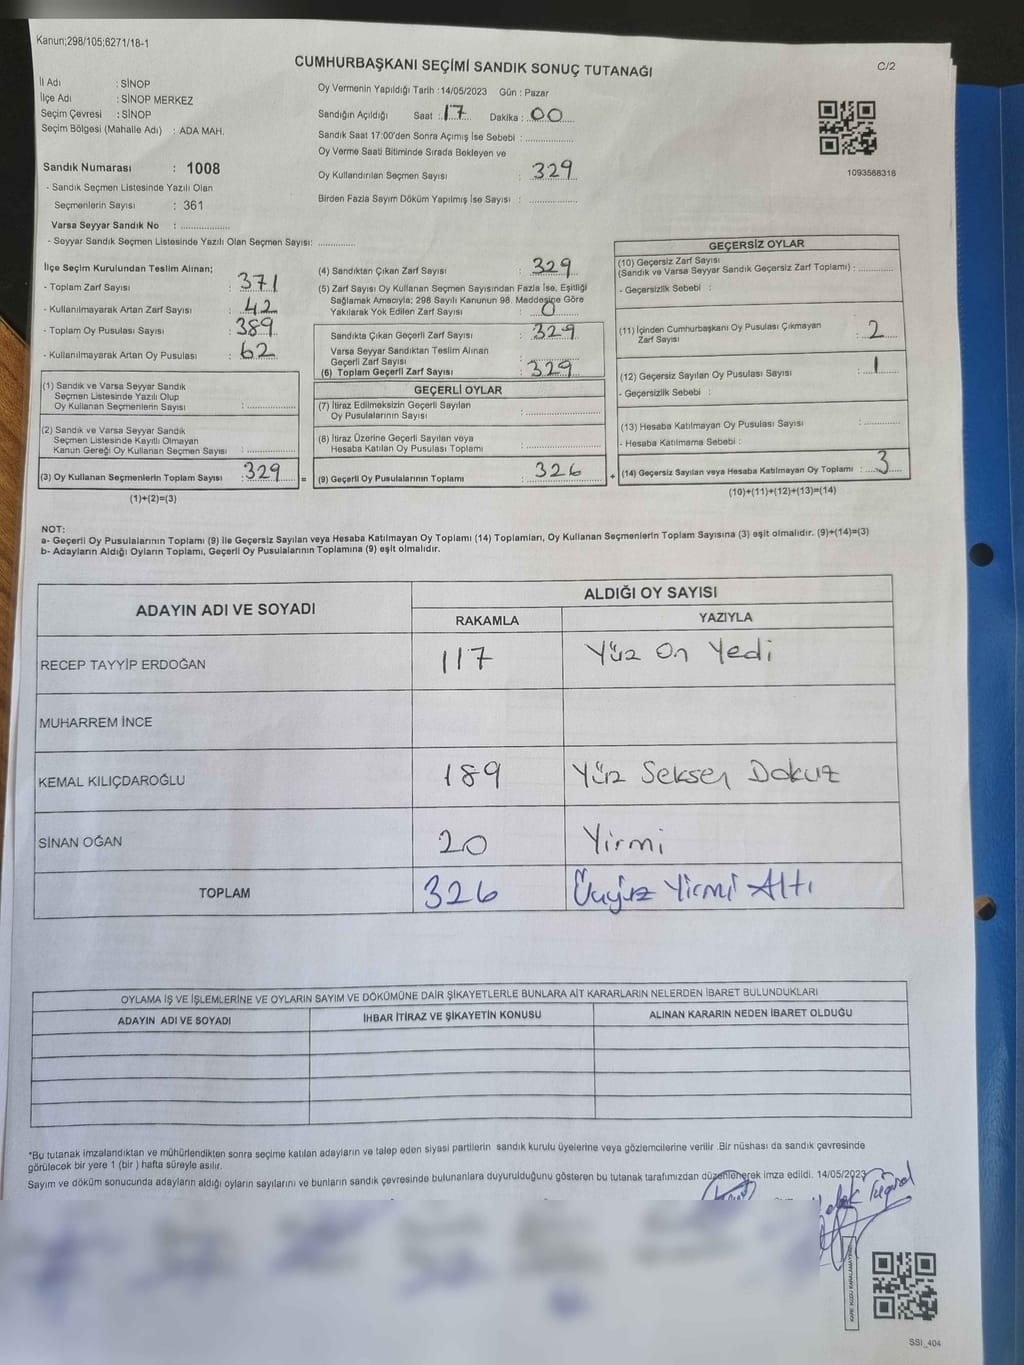 Kanun;298/105;6271/18-1
CUMHURBAŞKANI SEÇİMİ SANDIK SONUÇ TUTANAĞI
C/2
İl Adı : SİNOP
İlçe Adı : SİNOP MERKEZ
Seçim Çevresi : SİNOP
Seçim Bölgesi (Mahalle Adı) : ADA MAH.
Sandık Numarası : 1008
- Sandık Seçmen Listesinde Yazılı Olan
Seçmenlerin Sayısı : 361
Varsa Seyyar Sandık No : ................
- Seyyar Sandık Seçmen Listesinde Yazılı Olan Seçmen Sayısı: ............
Oy Vermenin Yapıldığı Tarih :14/05/2023 Gün : Pazar
Sandığın Açıldığı Saat : 17 Dakika : 00
Sandık Saat 17:00'den Sonra Açımış İse Sebebi : ................
Oy Verme Saati Bitiminde Sırada Bekleyen ve
Oy Kullandırılan Seçmen Sayısı : 329
Birden Fazla Sayım Döküm Yapılmış İse Sayısı : ................
1093588316
İlçe Seçim Kurulundan Teslim Alınan;
- Toplam Zarf Sayısı : 371
- Kullanılmayarak Artan Zarf Sayısı : 42
- Toplam Oy Pusulası Sayısı : 389
- Kullanılmayarak Artan Oy Pusulası : 62
(1) Sandık ve Varsa Seyyar Sandık
Seçmen Listesinde Yazılı Olup
Oy Kullanan Seçmenlerin Sayısı : ................
(2) Sandık ve Varsa Seyyar Sandık
Seçmen Listesinde Kayıtlı Olmayan
Kanun Gereği Oy Kullanan Seçmen Sayısı : ................
(3) Oy Kullanan Seçmenlerin Toplam Sayısı : 329
(1)+(2)=(3)
(4) Sandıktan Çıkan Zarf Sayısı : 329
(5) Zarf Sayısı Oy Kullanan Seçmen Sayısından Fazla İse, Eşitliği
Sağlamak Amacıyla; 298 Sayılı Kanunun 98. Maddesine Göre
Yakılarak Yok Edilen Zarf Sayısı : 0
Sandıkta Çıkan Geçerli Zarf Sayısı : 329
Varsa Seyyar Sandıktan Teslim Alınan
Geçerli Zarf Sayısı
(6) Toplam Geçerli Zarf Sayısı : 329
GEÇERLİ OYLAR
(7) İtiraz Edilmeksizin Geçerli Sayılan
Oy Pusulalarının Sayısı : ................
(8) İtiraz Üzerine Geçerli Sayılan veya
Hesaba Katılan Oy Pusulası Toplamı : ................
= (9) Geçerli Oy Pusulalarının Toplamı : 326
GEÇERSİZ OYLAR
(10) Geçersiz Zarf Sayısı
(Sandık ve Varsa Seyyar Sandık Geçersiz Zarf Toplamı) : ............
- Geçersizlik Sebebi :
(11) İçinden Cumhurbaşkanı Oy Pusulası Çıkmayan
Zarf Sayısı : 2
(12) Geçersiz Sayılan Oy Pusulası Sayısı : 1
- Geçersizlik Sebebi :
(13) Hesaba Katılmayan Oy Pusulası Sayısı : ............
- Hesaba Katılmama Sebebi :
+ (14) Geçersiz Sayılan veya Hesaba Katılmayan Oy Toplamı : 3
(10)+(11)+(12)+(13)=(14)
NOT:
a- Geçerli Oy Pusulalarının Toplamı (9) ile Geçersiz Sayılan veya Hesaba Katılmayan Oy Toplamı (14) Toplamları, Oy Kullanan Seçmenlerin Toplam Sayısına (3) eşit olmalıdır. (9)+(14)=(3)
b- Adayların Aldığı Oyların Toplamı, Geçerli Oy Pusulalarının Toplamına (9) eşit olmalıdır.
ADAYIN ADI VE SOYADI
ALDIĞI OY SAYISI
RAKAMLA YAZIYLA
RECEP TAYYİP ERDOĞAN 117 Yüz On Yedi
MUHARREM İNCE
KEMAL KILIÇDAROĞLU 189 Yüz Seksen Dokuz
SİNAN OĞAN 20 Yirmi
TOPLAM 326 Üçyüz Yirmi Altı
OYLAMA İŞ VE İŞLEMLERİNE VE OYLARIN SAYIM VE DÖKÜMÜNE DAİR ŞİKAYETLERLE BUNLARA AİT KARARLARIN NELERDEN İBARET BULUNDUKLARI
ADAYIN ADI VE SOYADI İHBAR İTİRAZ VE ŞİKAYETİN KONUSU ALINAN KARARIN NEDEN İBARET OLDUĞU
*Bu tutanak imzalandıktan ve mühürlendikten sonra seçime katılan adayların ve talep eden siyasi partilerin sandık kurulu üyelerine veya gözlemcilerine verilir .Bir nüshası da sandık çevresinde
görülecek bir yere 1 (bir ) hafta süreyle asılır.
Sayım ve döküm sonucunda adayların aldığı oyların sayılarını ve bunların sandık çevresinde bulunanlara duyurulduğunu gösteren bu tutanak tarafımızdan düzenlenerek imza edildi. 14/05/2023
SSI_404